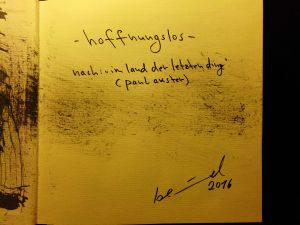 - hoffnungslos -
nach: „im land der letzten dinge"
(paul auster)
2016